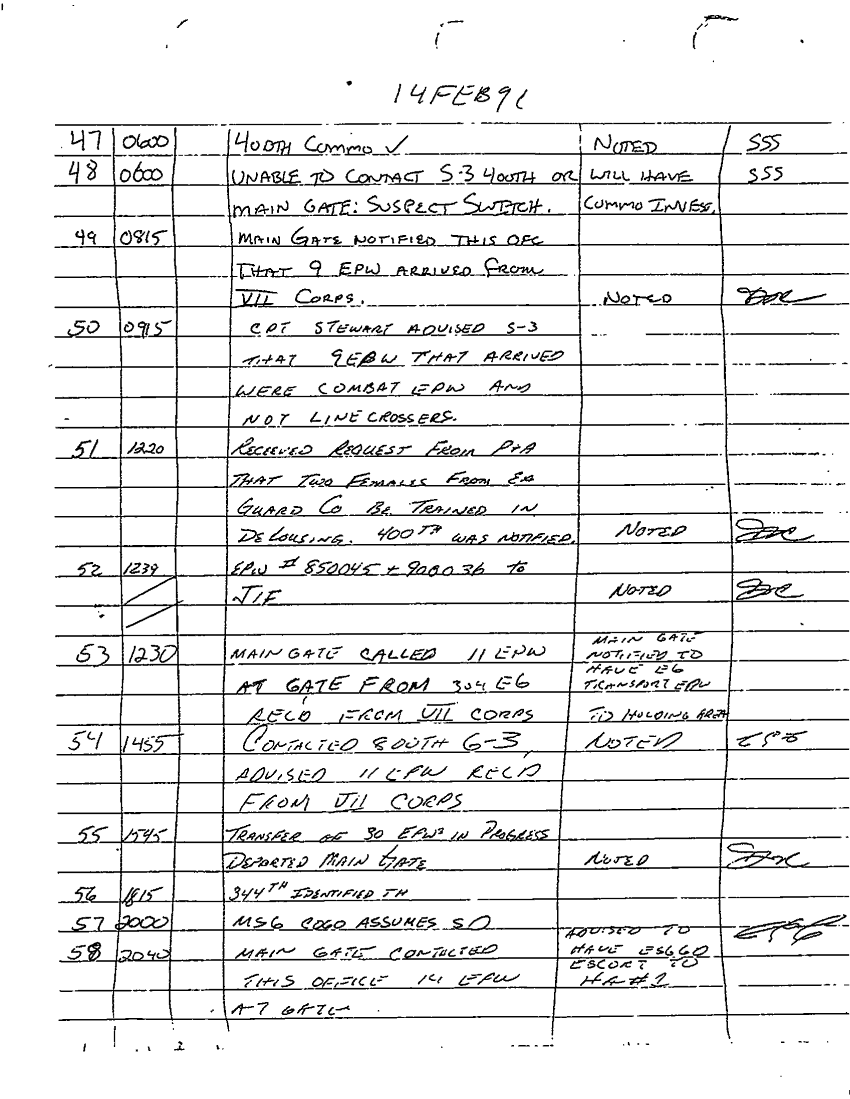 14 FEB 91
47 0600 400TH COMMO ✓ NOTED SSS
48 0600 UNABLE TO CONTACT S-3 400TH OR WILL HAVE SSS
MAIN GATE: SUSPECT SWITCH. COMMO INVESS.
49 0815 MAIN GATE NOTIFIED THIS OFC
THAT 9 EPW ARRIVED FROM
VII CORPS. NOTED
50 0915 CPT STEWART ADVISED S-3
THAT 9 EPW THAT ARRIVED
WERE COMBAT EPW AND
NOT LINE CROSSERS.
51 1220 RECIEVED REQUEST FROM P+A
THAT TWO FEMALES FROM EA
GUARD CO BE TRAINED IN
DELOUSING. 400TH WAS NOTIFIED. NOTED
52 1239 EPW # 850045 + 900036 to
JIF NOTED
53 1230 MAIN GATE CALLED 11 EPW MAIN GATE NOTIFIED TO
AT GATE FROM 304 EG HAVE EG TRANSPORT EPW
REC'D FROM VII CORPS TO HOLDING AREA
54 1455 CONTACTED 800TH G-3, NOTED
ADVISED 11 EPW REC'D
FROM VII CORPS
55 1545 TRANSFER OF 30 EPWS IN PROGRESS
DEPARTED MAIN GATE NOTED
56 1815 344TH IDENTIFIED TM
57 2000 MSG COGO ASSUMES SD
58 2040 MAIN GATE CONTACTED ADVISED TO HAVE ESGGO
THIS OFFICE 14 EPW ESCORT TO HA#2
AT GATE